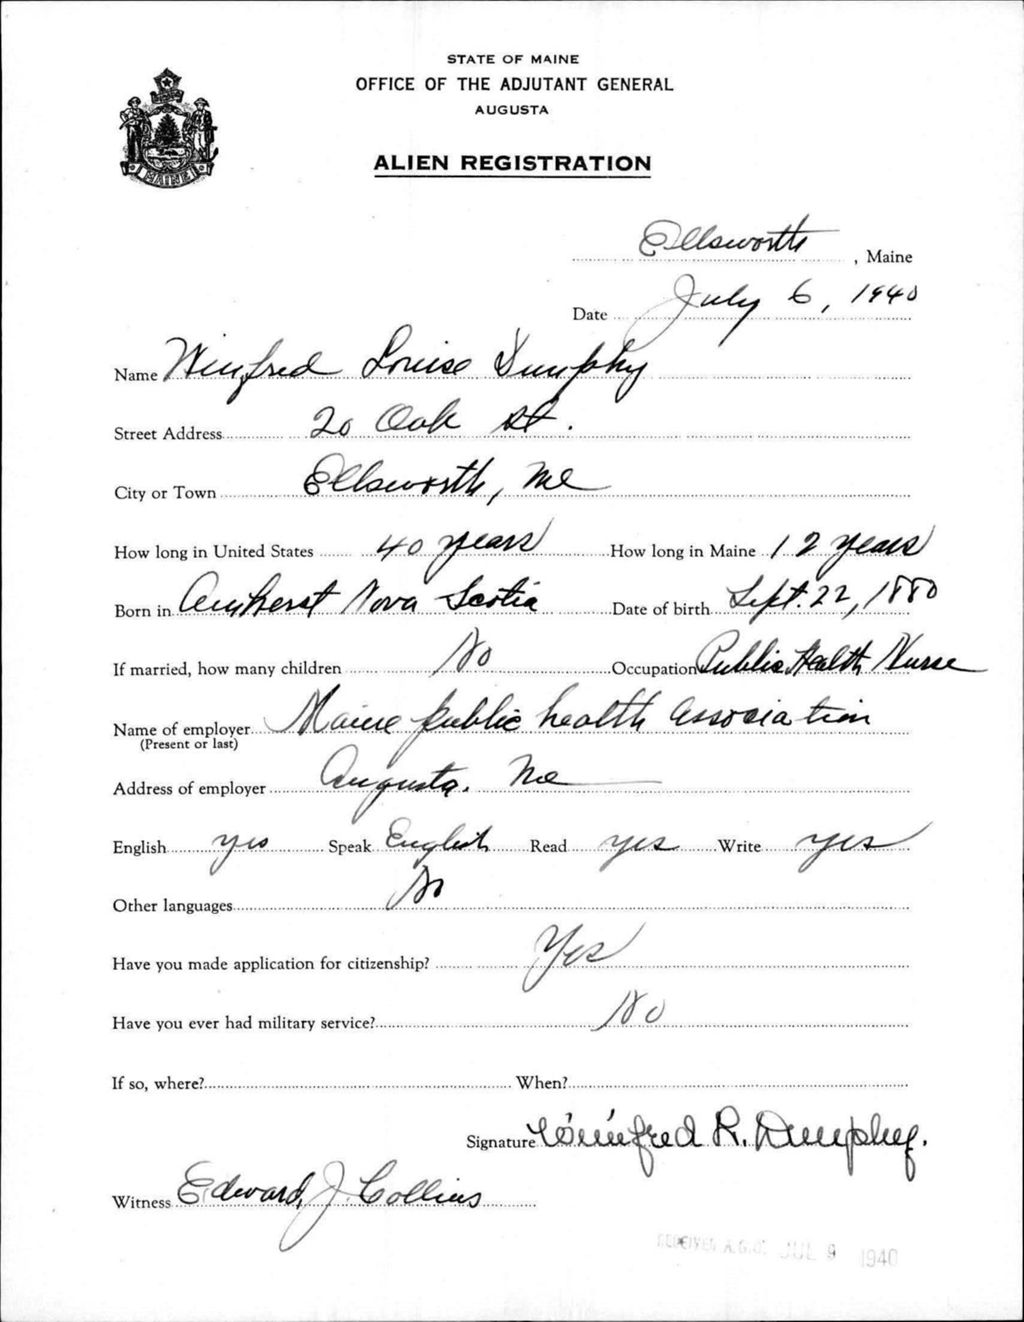 STATE OF MAINE
OFFICE OF THE ADJUTANT GENERAL
AUGUSTA
ALIEN REGISTRATION
MAINE
Ellsworth, Maine
Date July 6, 1940
Name Winfred Louise Dumphy
Street Address 20 Oak St.
City or Town Ellsworth, Me
How long in United States 40 years How long in Maine 12 years
Born in Amherst Nova Scotia Date of birth Sept. 22, 1880
If married, how many children No Occupation Public Health Nurse
Name of employer Maine public health association
(Present or last)
Address of employer Augusta. Me
English yes Speak English Read yes Write yes
Other languages No
Have you made application for citizenship? Yes
Have you ever had military service? No
If so, where? When?
Signature Winifred R. Dumphy.
Witness Edward J. Collins
RECEIVED A.G.O. JUL 9 1940